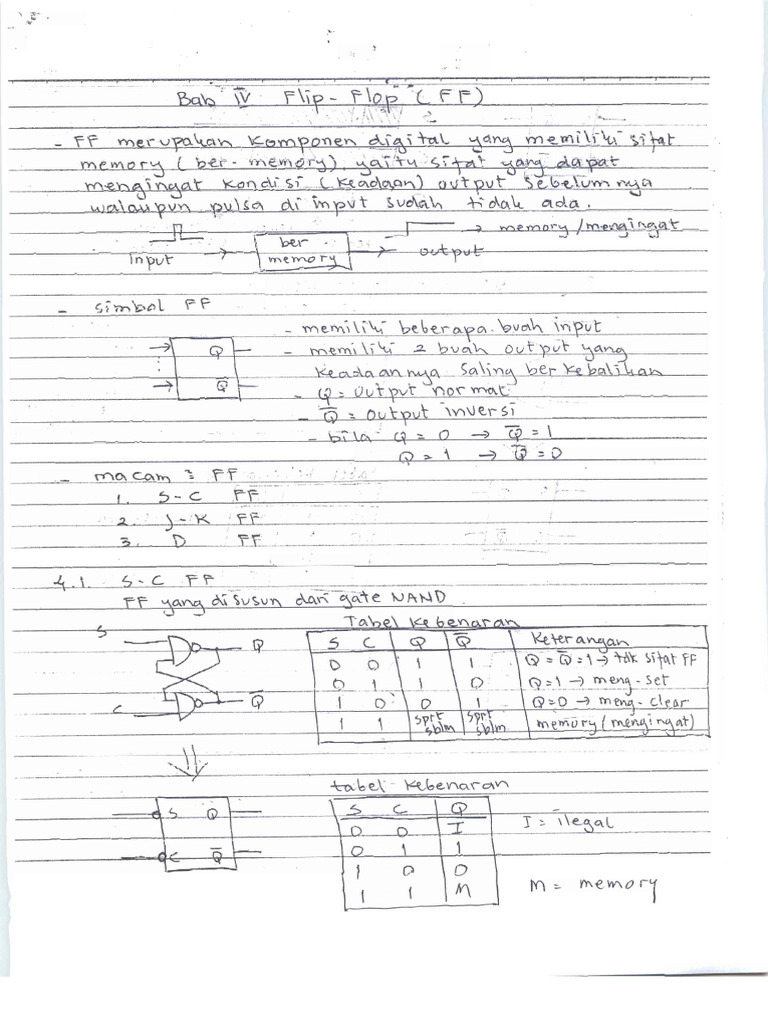 Bab IV Flip-Flop (FF)
- FF merupakan komponen digital yang memiliki sifat
memory (ber-memory) yaitu sifat yang dapat
mengingat kondisi (keadaan) output sebelumnya
walaupun pulsa di input sudah tidak ada.
input → ber memory → output → memory/mengingat
- simbol FF
Q
Q̅
- memiliki beberapa buah input
- memiliki 2 buah output yang
keadaannya saling berkebalikan
- Q = output normal
- Q̅ = output inversi
- bila Q = 0 → Q̅ = 1
Q = 1 → Q̅ = 0
- macam² FF
1. S-C FF
2. J-K FF
3. D FF
4.1. S-C FF
FF yang disusun dari gate NAND.
S Q
C Q̅
Tabel kebenaran
S C Q Q̅ Keterangan
0 0 1 1 Q = Q̅ = 1 → tdk sifat FF
0 1 1 0 Q = 1 → meng-set
1 0 0 1 Q = 0 → meng-clear
1 1 sprt sblm sprt sblm memory (mengingat)
S Q
C Q̅
tabel kebenaran
S C Q
0 0 I
0 1 1
1 0 0
1 1 M
I = ilegal
M = memory